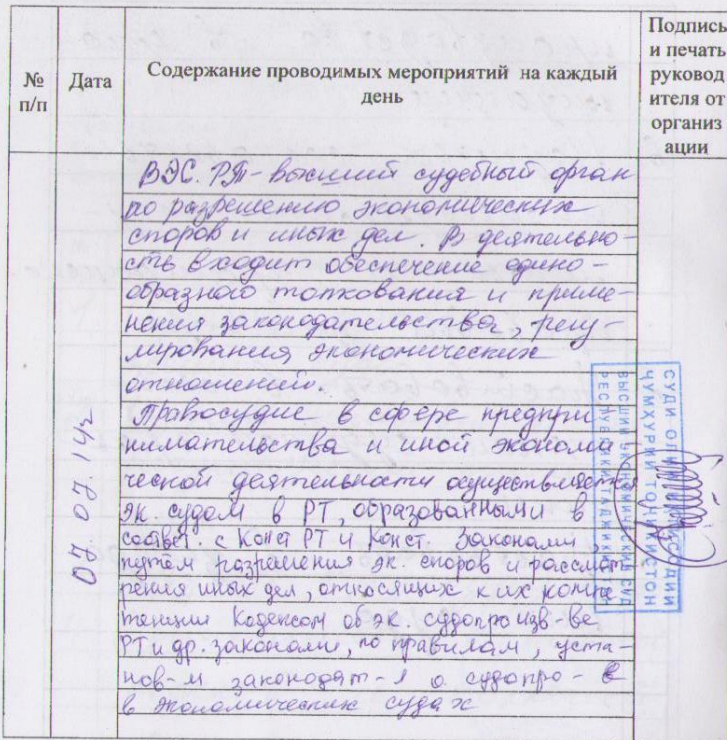 №
п/п
Дата
Содержание проводимых мероприятий на каждый
день
Подпись
и печать
руковод
ителя от
организ
ации
07.07.14г
ВЭС. РТ - высший судебный орган
по разрешению экономических
споров и иных дел. В деятельно-
сть входит обеспечение едино-
образного толкования и приме-
нения законодательства, регу-
лирования экономических
отношений.
Правосудие в сфере предпри
нимательства и иной эконом
ческой деятельности осуществляется
эк. судом в РТ, образованными в
соответ. с Конст РТ и Конст. Законами,
путём разрешения эк. споров и рассмот
рения иных дел, относящих к их компе
тенции Кодексом об эк. судопроизв-ве
РТ и др. законами, по правилам, уста-
нов-м законодат-я о судопро-в
в экономических судах
СУДИ ОЛИИ ИҚТИСОДИИ
ҶУМҲУРИИ ТОҶИКИСТОН
ВЫСШИЙ ЭКОНОМИЧЕСКИЙ СУД
РЕСПУБЛИКИ ТАДЖИКИСТАН